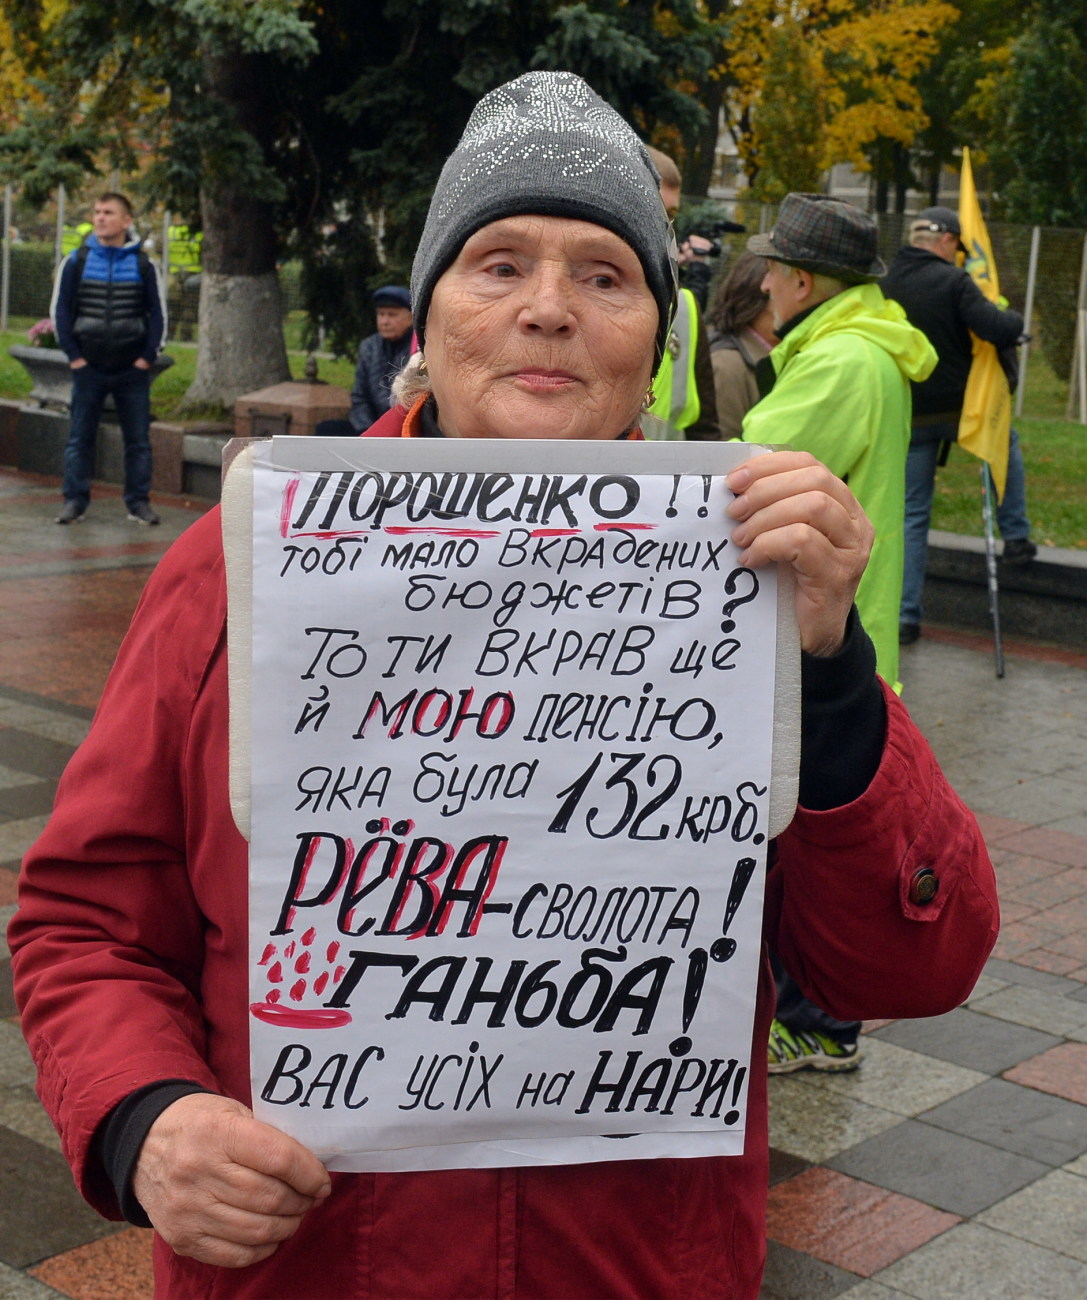 Порошенко!!
тобі мало вкрадених
бюджетів?
То ти вкрав ще
й мою пенсію,
яка була 132 крб.
РЁВА-сволота!
Ганьба!
Вас усіх на НАРИ!